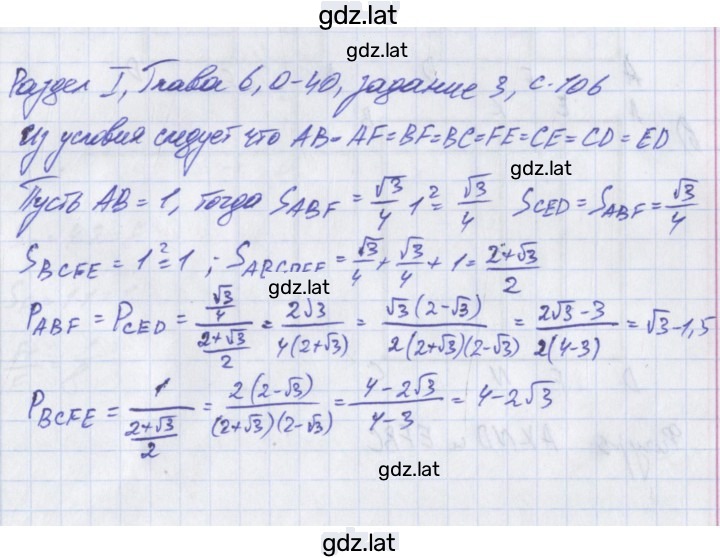 gdz.lat
Раздел I, Глава 6, О-40, задание 3, с.106
Из условия следует что AB=AF=BF=BC=FE=CE=CD=ED
Пусть AB=1, тогда S_ABF = √3/4 1² = √3/4 S_CED = S_ABF = √3/4
gdz.lat
S_BCFE = 1² = 1 ; S_ABCDEF = √3/4 + √3/4 + 1 = (2+√3)/2
gdz.lat
P_ABF = P_CED = (√3/4)/((2+√3)/2) = 2√3/(4(2+√3)) = √3(2-√3)/(2(2+√3)(2-√3)) = (2√3-3)/(2(4-3)) = √3-1,5
P_BCFE = 1/((2+√3)/2) = 2(2-√3)/((2+√3)(2-√3)) = (4-2√3)/(4-3) = 4-2√3
gdz.lat
gdz.lat